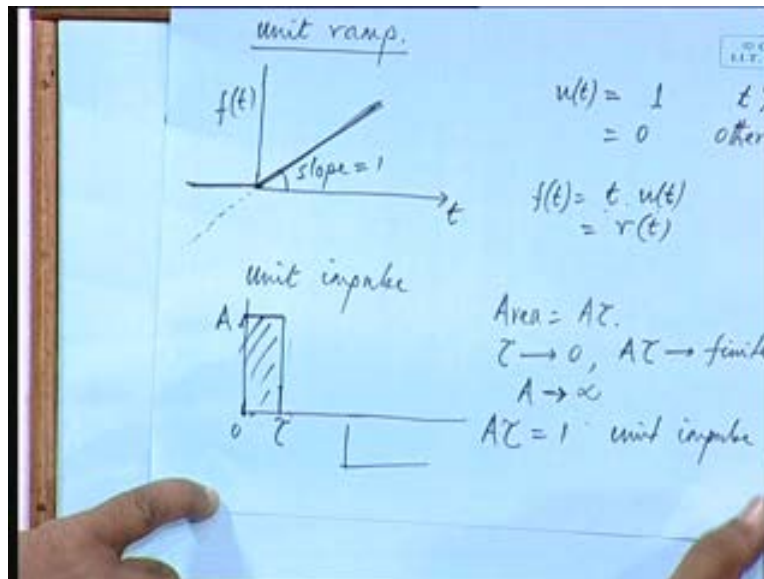 unit ramp.
f(t)
slope = 1
t
u(t) = 1 t
= 0 other
f(t) = t. u(t)
= r(t)
I.I.T.
unit impulse
A
0 τ
Area = Aτ.
τ → 0, Aτ → finite
A → ∞
Aτ = 1 unit impulse